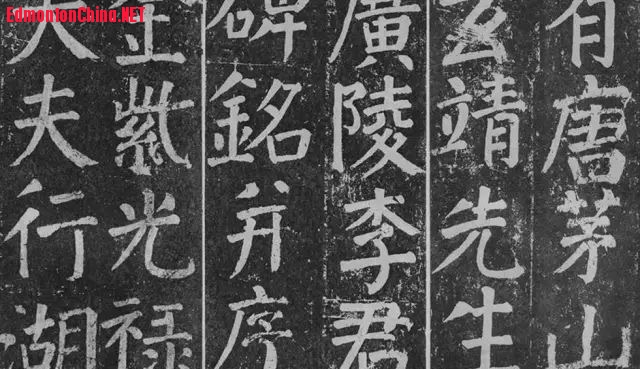 EdmontonChina.NET
有唐茅山
玄靖先生
廣陵李君
碑銘并序
金紫光禄
大夫行湖